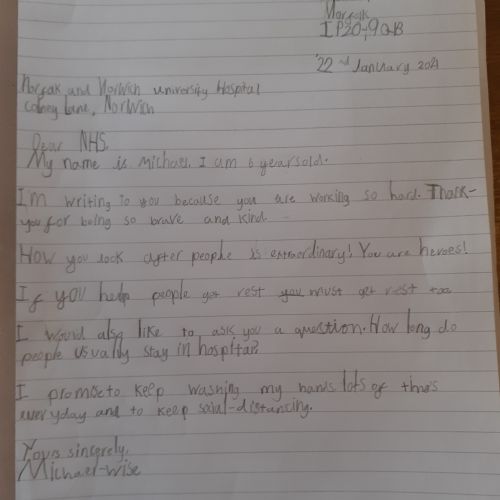 Norfolk
IP20 9QB
22nd January 2021
Norfok and Norwich university Hospital
colney Lane, Norwich
Dear NHS,
My name is Michael. I am 6 years old.
I'm writing to you because you are working so hard. Thank-
you for being so brave and kind
How you look after people is extraordinary! You are heroes!
If you help people get rest you must get rest too
I would also like to ask you a question. How long do
people usually stay in hospital?
I promise to keep washing my hands lots of times
everyday and to keep social-distancing.
Yours sincerely,
Michael-wise